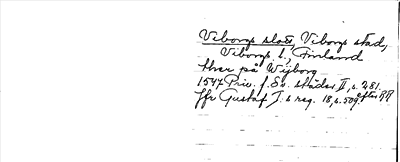 Viborgs slott, Viborgs stad,
Viborgs l., Finland
thær på Wijborg
1547 Priv. f. Sv. städer II, s. 281.
Jfr Gustaf I:s reg. 18, s. 509 efter RR